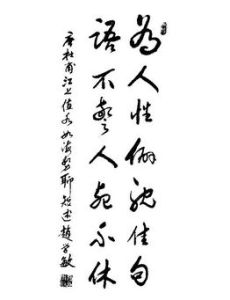 為人性僻耽佳句
語不驚人死不休
唐杜甫江上值水如海勢聊短述趙學敏